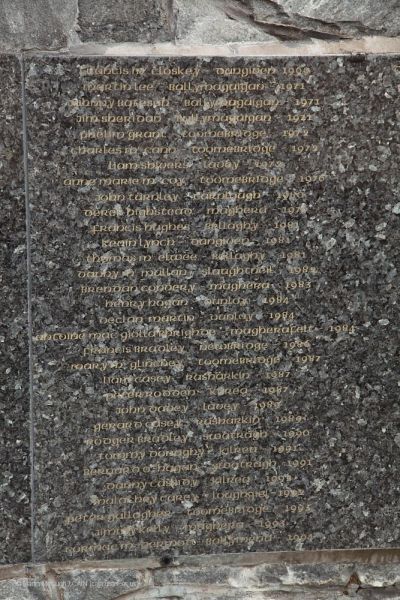 Francis Mc Closkey - Dungiven 1969
Martin Lee - Ballymaguigan - 1971
Ballymaguigan - 1971
Jim Sheridan - Ballymaguigan - 1971
Phelim Grant - Toomebridge - 1972
Charles Mc Cann - Toomebridge - 1972
Lavey - 1973
Anne Marie Mc Coy - Toomebridge - 1976
John Turnley - Carnlough -
Maghera - 197
Francis Hughes - Bellaghy - 1981
Kevin Lynch - Dungiven - 1981
Thomas Mc Elwee - Bellaghy - 1981
Danny Mc Mullan - Slaughtneil - 198
Brendan Convery - Maghera - 1983
Henry Hogan - Dunloy - 1984
Declan Martin - Dunloy - 1984
Antoine Mac Giolla Bhrighde - Magherafelt - 1984
Francis Bradley - Newbridge - 1986
Mary Mc Glinchey - Toomebridge - 1987
Liam Casey - Rasharkin - 1987
Peter Rodden - Kilrea - 1987
John Davey - Lavey - 1989
Gerard Casey - Rasharkin - 1989
Rodger Bradley - Swatragh - 1990
Tommy Donaghy - Kilrea - 1991
Bernard O'Hagan - Swatragh - 1991
Danny Cassidy - Kilrea - 199
Malachy Carey - Loughgiel - 1992
Peter Gallagher - Toomebridge - 1993
Kelly - Maghera - 1993
Cormac Mc Dermott - Ballymena - 1994